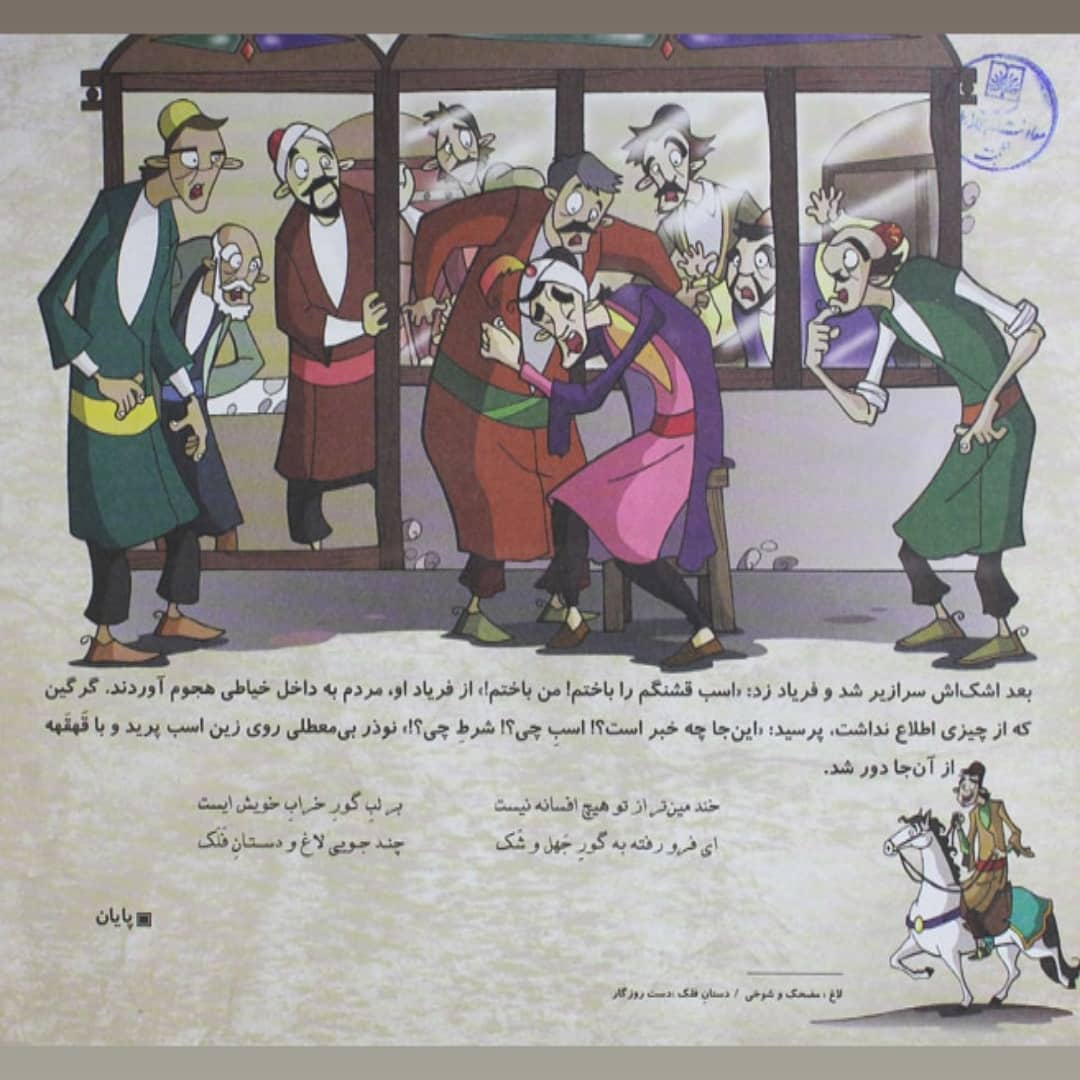 بعد اشک‌اش سرازیر شد و فریاد زد: «اسب قشنگم را باختم! من باختم!» از فریاد او، مردم به داخل خیاطی هجوم آوردند. گرگین
که از چیزی اطلاع نداشت، پرسید: «این‌جا چه خبر است؟! اسبِ چی؟! شرطِ چی؟!» نوذر بی‌معطلی روی زین اسب پرید و با قَهقَهه
از آن‌جا دور شد.
خند مین‌تر از تو هیچ افسانه نیست بر لبِ گورِ خرابِ خویش ایست
ای فرو رفته به گورِ جَهل و شَک چند جویی لاغ و دستانِ فَلَک
پایان
لاغ : مضحک و شوخی / دستانِ فلک :دست روزگار
معاونت